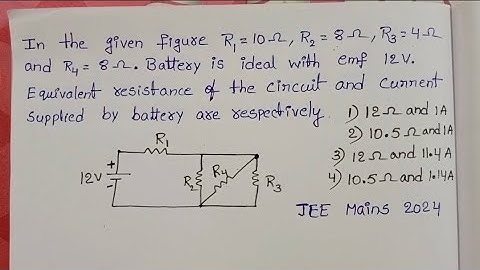 In the given figure R₁ = 10 Ω, R₂ = 8 Ω, R₃ = 4 Ω
and R₄ = 8 Ω. Battery is ideal with emf 12 V.
Equivalent resistance of the circuit and current
supplied by battery are respectively.
1) 12 Ω and 1A
2) 10.5 Ω and 1A
3) 12 Ω and 11.4 A
4) 10.5 Ω and 1.14 A
R₁
+
12V
-
R₂
R₄
R₃
JEE Mains 2024